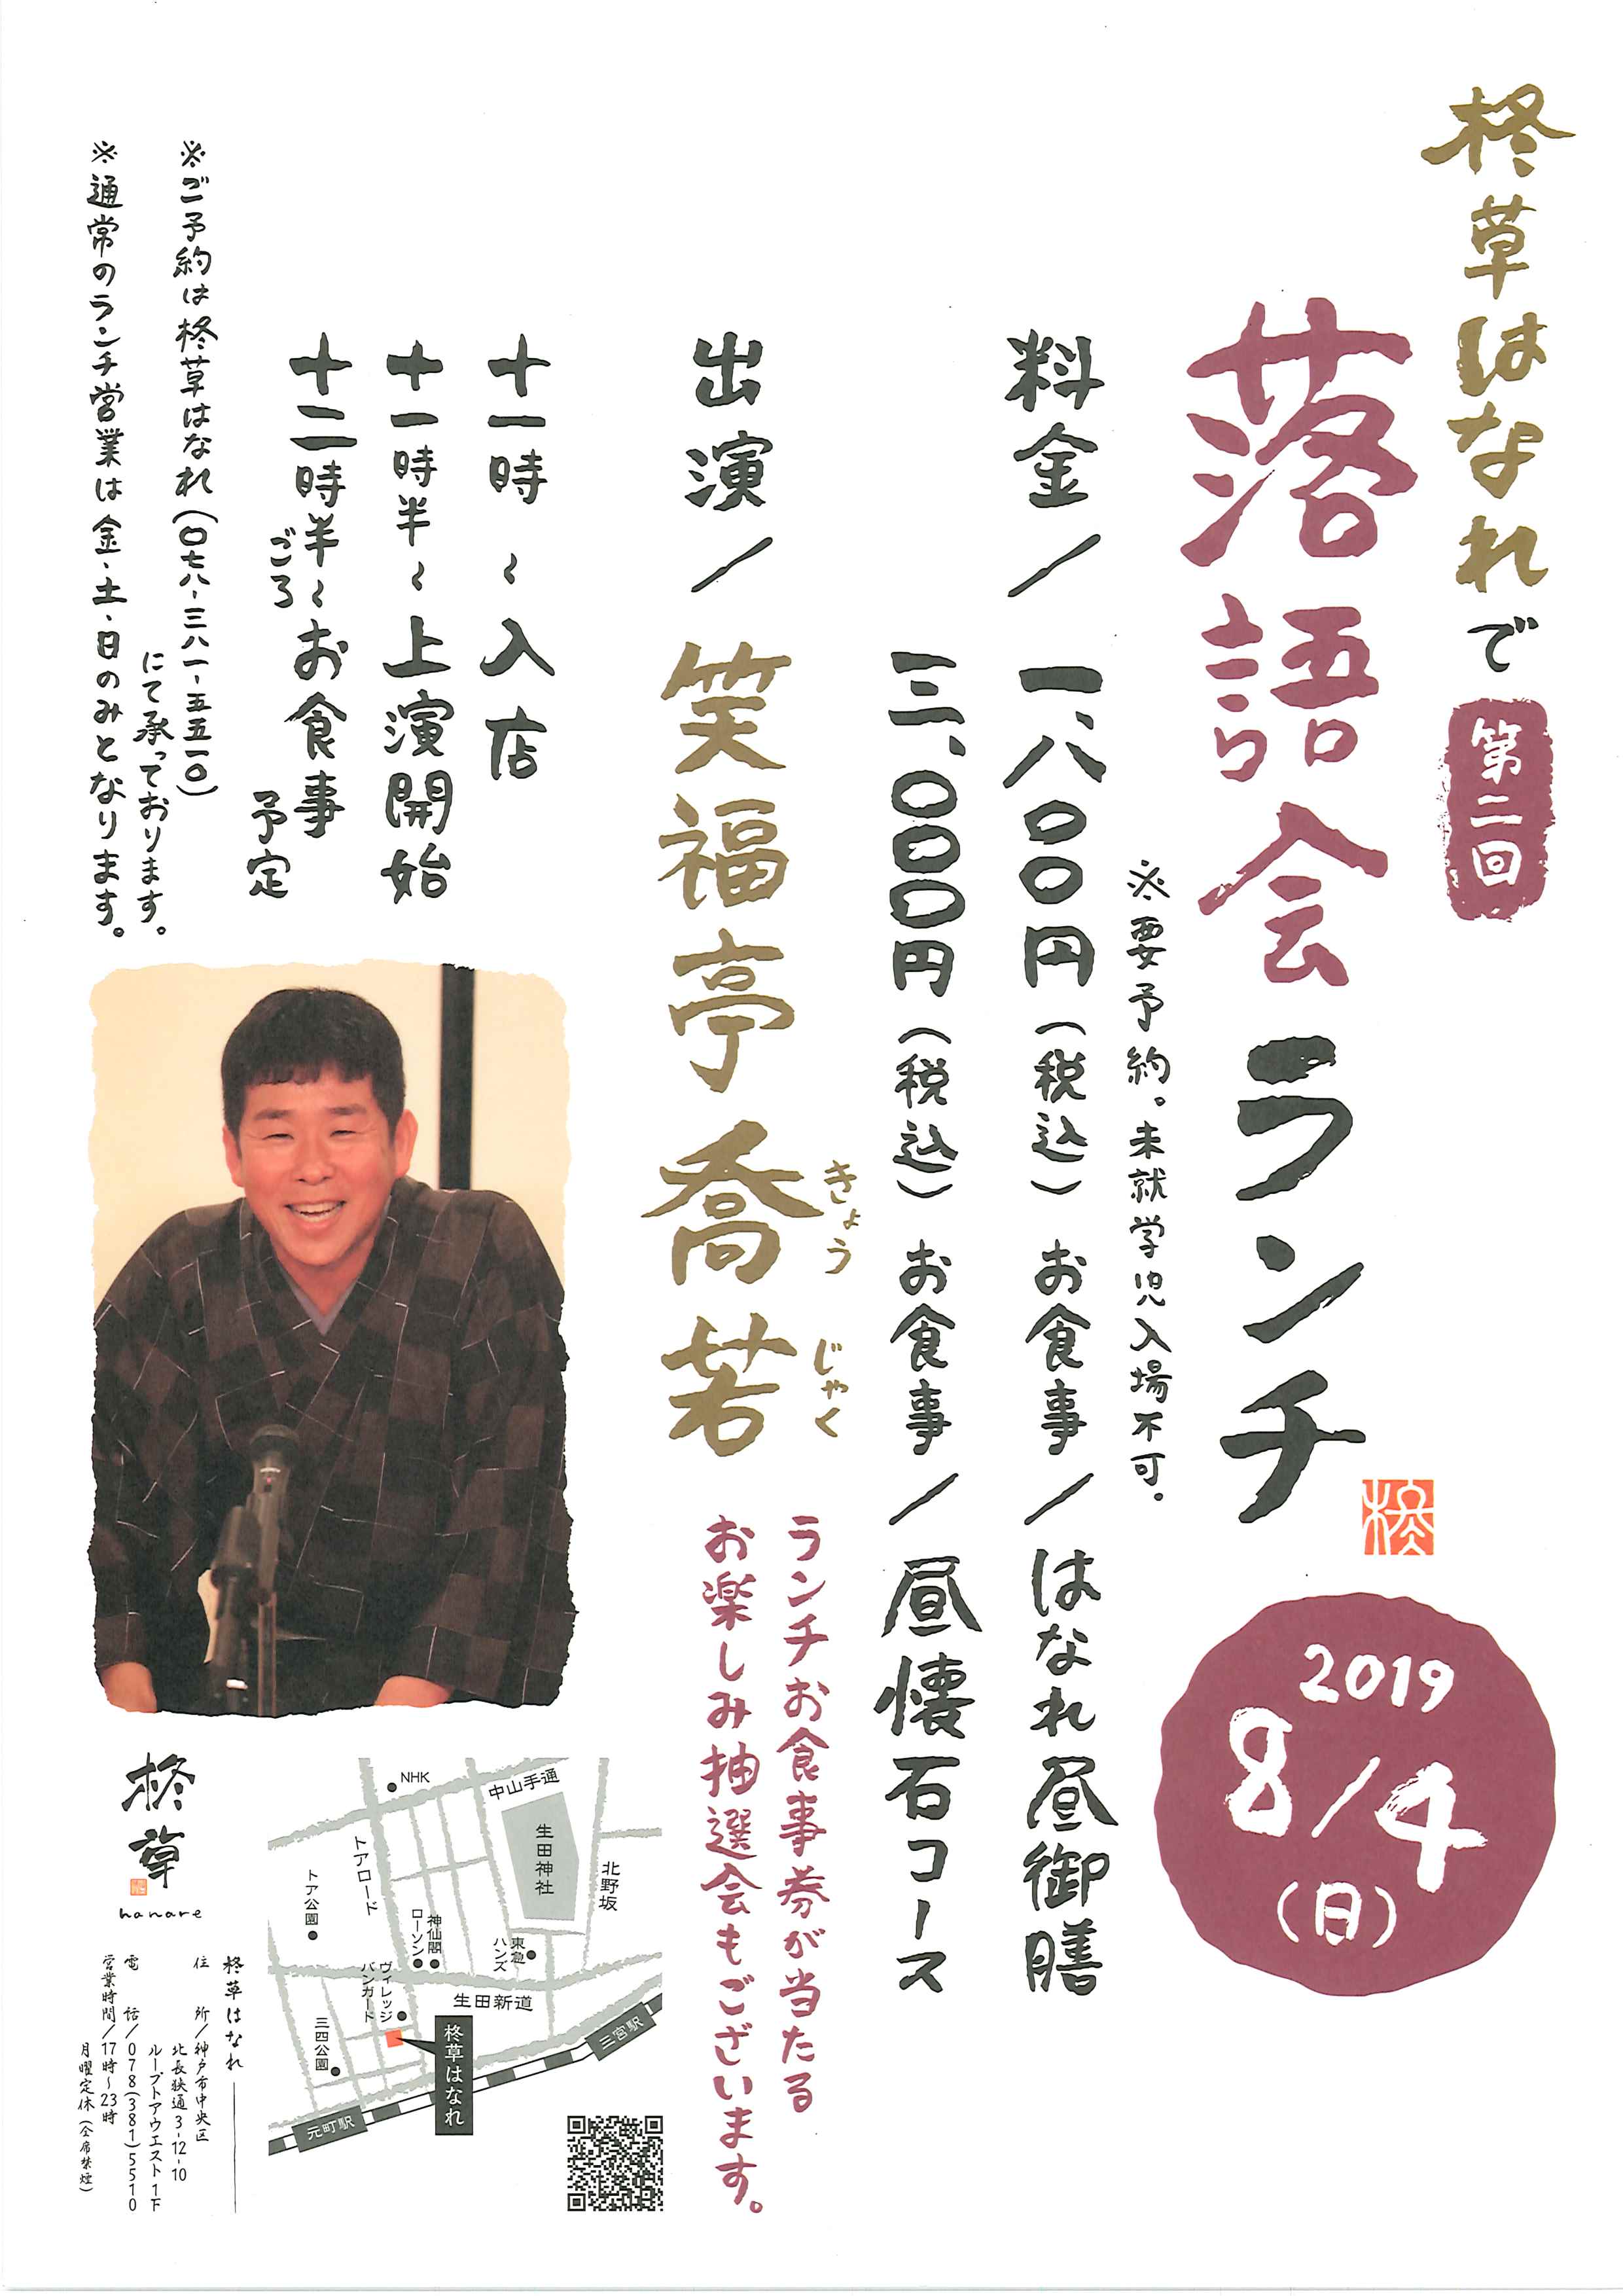 柊草はなれで
第二回
落語会ランチ
2019
8/4
(日)
※要予約。未就学児入場不可。
料金/一、八〇〇円(税込)お食事/はなれ昼御膳
三、〇〇〇円(税込)お食事/昼懐石コース
出演/笑福亭喬若
きょう じゃく
ランチお食事券が当たる
お楽しみ抽選会もございます。
十一時～入店
十一時半～上演開始
十二時半～お食事
ごろ
予定
※ご予約は柊草はなれ(〇七八-三八一-五五一〇)
にて承っております。
※通常のランチ営業は金・土・日のみとなります。
NHK
中山手通
生田神社
北野坂
トアロード
トア公園
神仙閣
ローソン
東急
ハンズ
ヴィレッジ
バンガード
生田新道
三四公園
柊草はなれ
三宮駅
元町駅
柊草
hanare
柊草はなれ
住所/神戸市中央区
北長狭通3-12-10
ループトアウエスト1F
電話/078(381)5510
営業時間/17時～23時
月曜定休(全席禁煙)